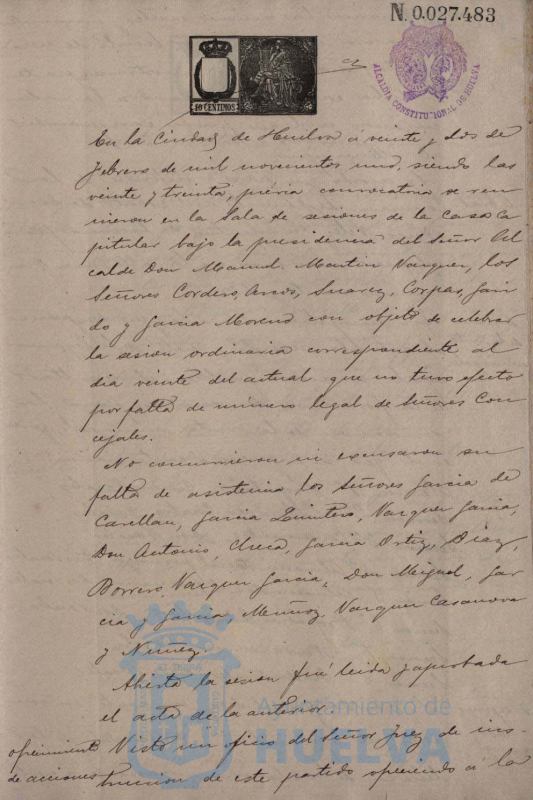 N. 0.027.483
10 CENTIMOS
ALCALDIA CONSTITUCIONAL DE HUELVA
En la Ciudad de Huelva á veinte y dos de
Febrero de mil novecientos uno, siendo las
veinte y treinta, prévia convocatoria se reu
nieron en la Sala de sesiones de la Casa Ca
pitular bajo la presidencia del Señor Al
calde Don Manuel Martin Vazquez, los
Señores Cordero, Arcos, Suarez, Corpas, Garri
do y Garcia Moreno con objeto de celebrar
la sesion ordinaria correspondiente al
dia veinte del actual que no tuvo efecto
por falta de número legal de Señores Con
cejales.
No concurrieron ni excusaron su
falta de asistencia los Señores Garcia de
Garcia Quintero, Vazquez Garcia,
Don Antonio, Checa, Garcia Ortiz, Diaz,
Borrero, Vazquez Garcia, Don Miguel, Gar
cia y Garcia, Muñoz, Vazquez Casanova
y Nuñez.
Abierta la sesion fué leida y aprobada
el acta de la anterior.
ofrecimiento
de acciones
Visto un oficio del Señor Juez de ins-
truccion de este partido ofreciendo á la
Ayuntamiento de
HUELVA